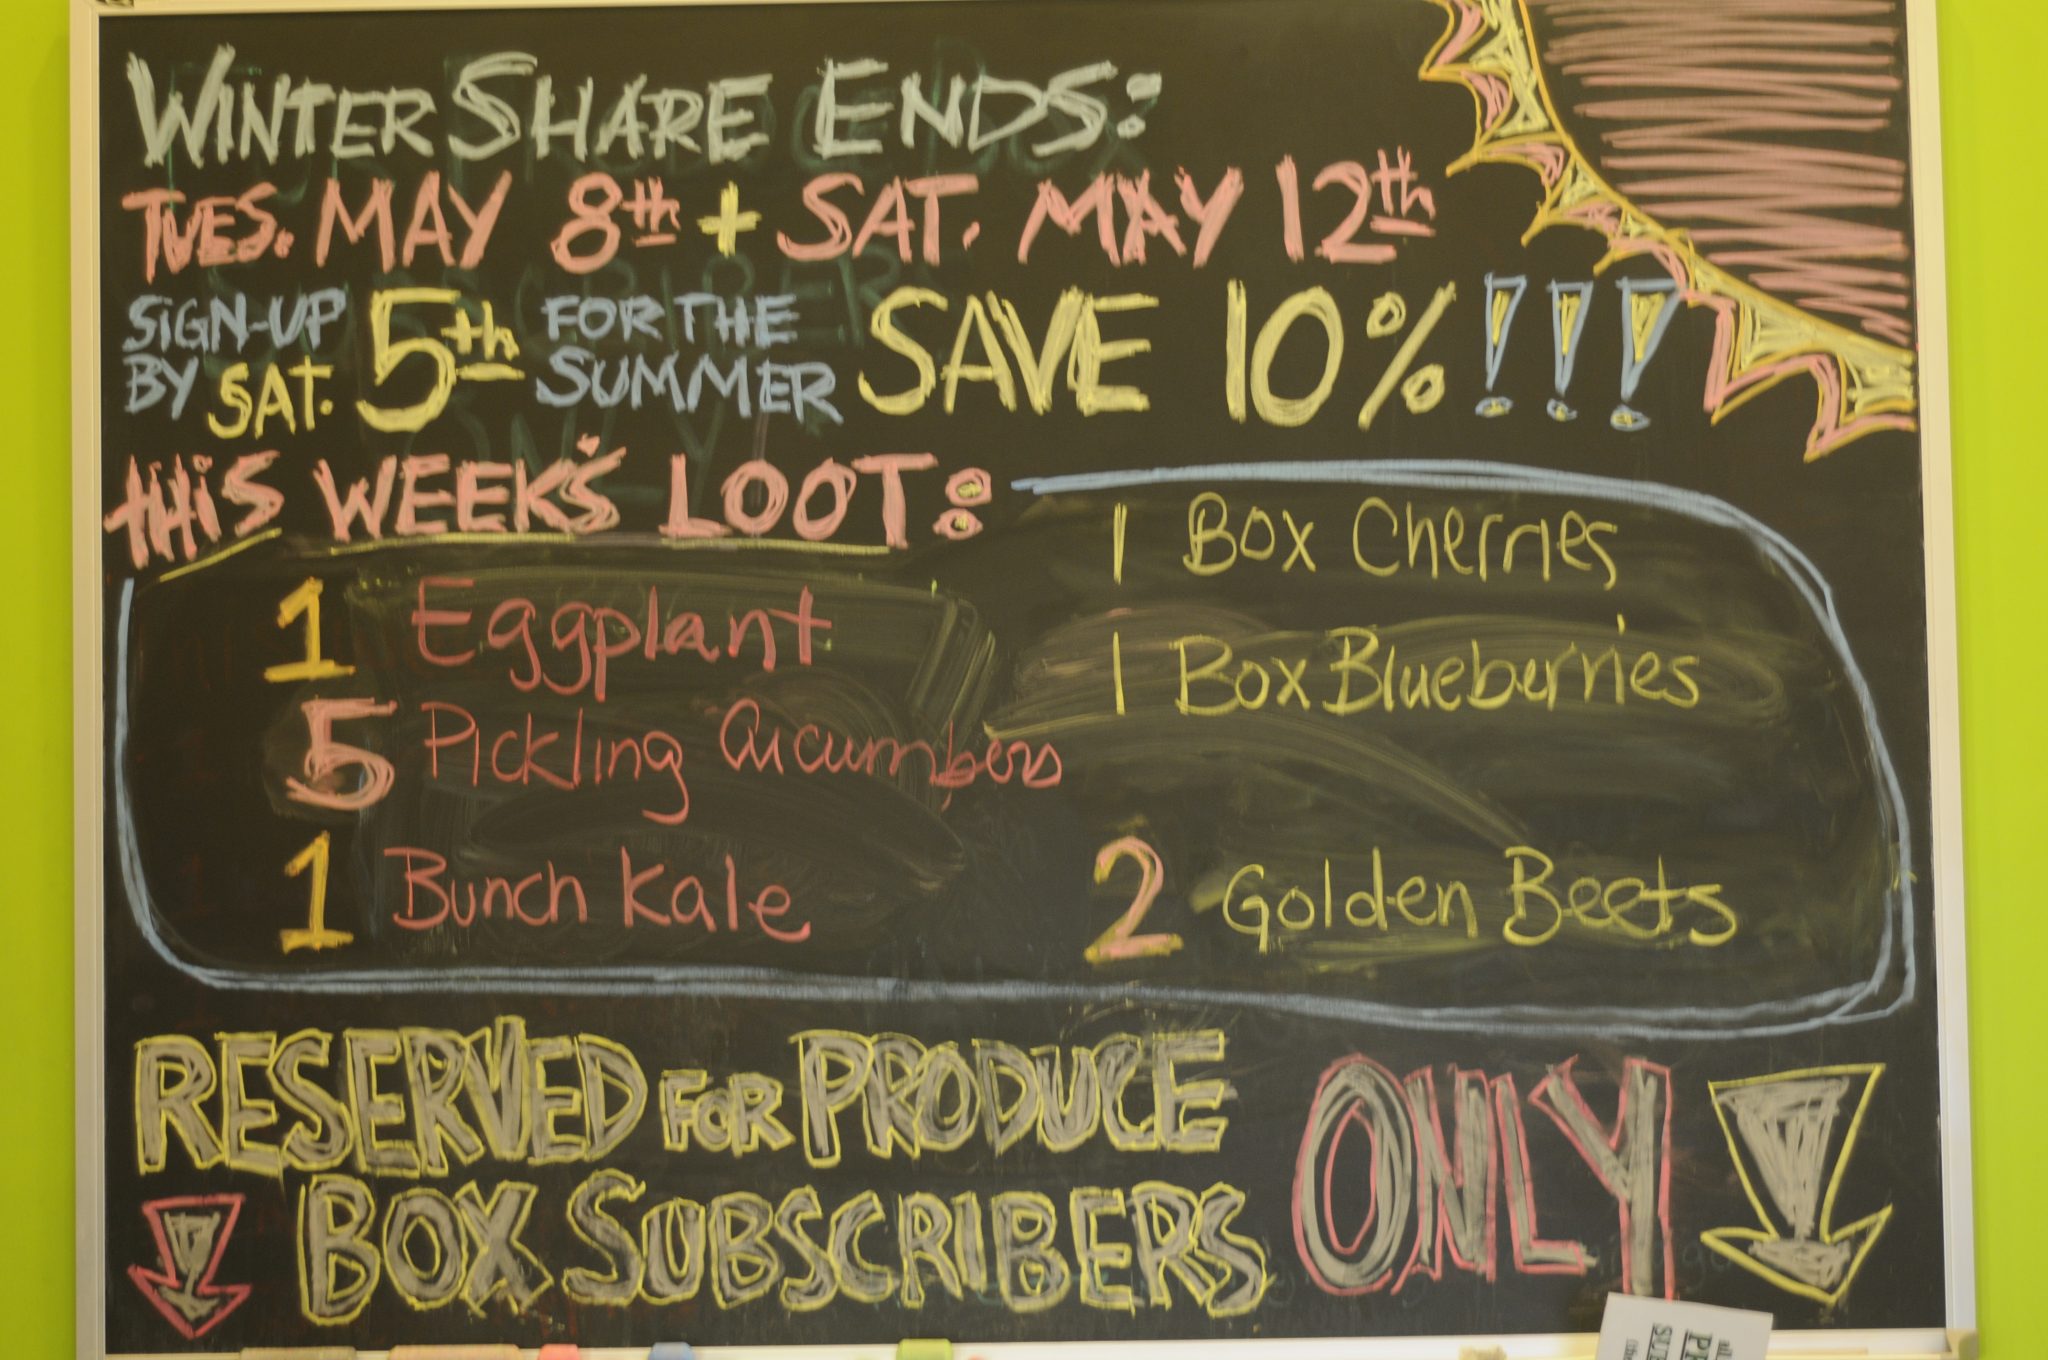 WINTER SHARE ENDS:
TUES. MAY 8th + SAT. MAY 12th
SIGN-UP BY SAT. 5th FOR THE SUMMER SAVE 10%!!!
THIS WEEK'S LOOT:
1 Eggplant
5 Pickling Cucumbers
1 Bunch Kale
1 Box Cherries
1 Box Blueberries
2 Golden Beets
RESERVED FOR PRODUCE
BOX SUBSCRIBERS ONLY